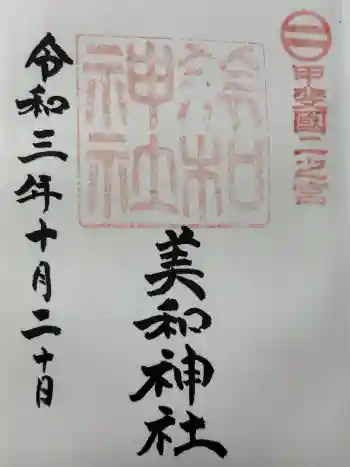 甲斐國二之宮
美和神社
美和神社
令和三年十月二十日